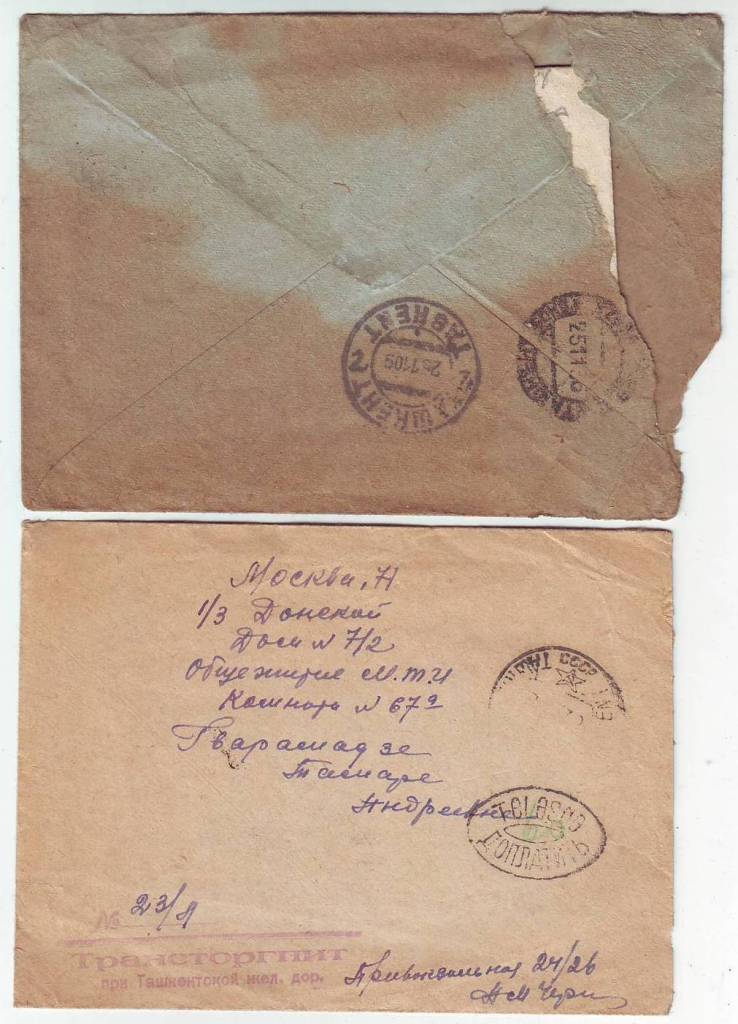 ТАШКЕНТ 2
TAŞKENT
25.1109
25 11
Москва, Н
1/3 Донской
Дом № 7/2
Общежитие М.Т.И
Комната № 67а
Гварамадзе
Тамаре
Андреевне
СССР
ДОПЛАТИТЬ
№ 23/Л
Трансторгпит
при Ташкентской жел. дор.
Привокзальная 24/26